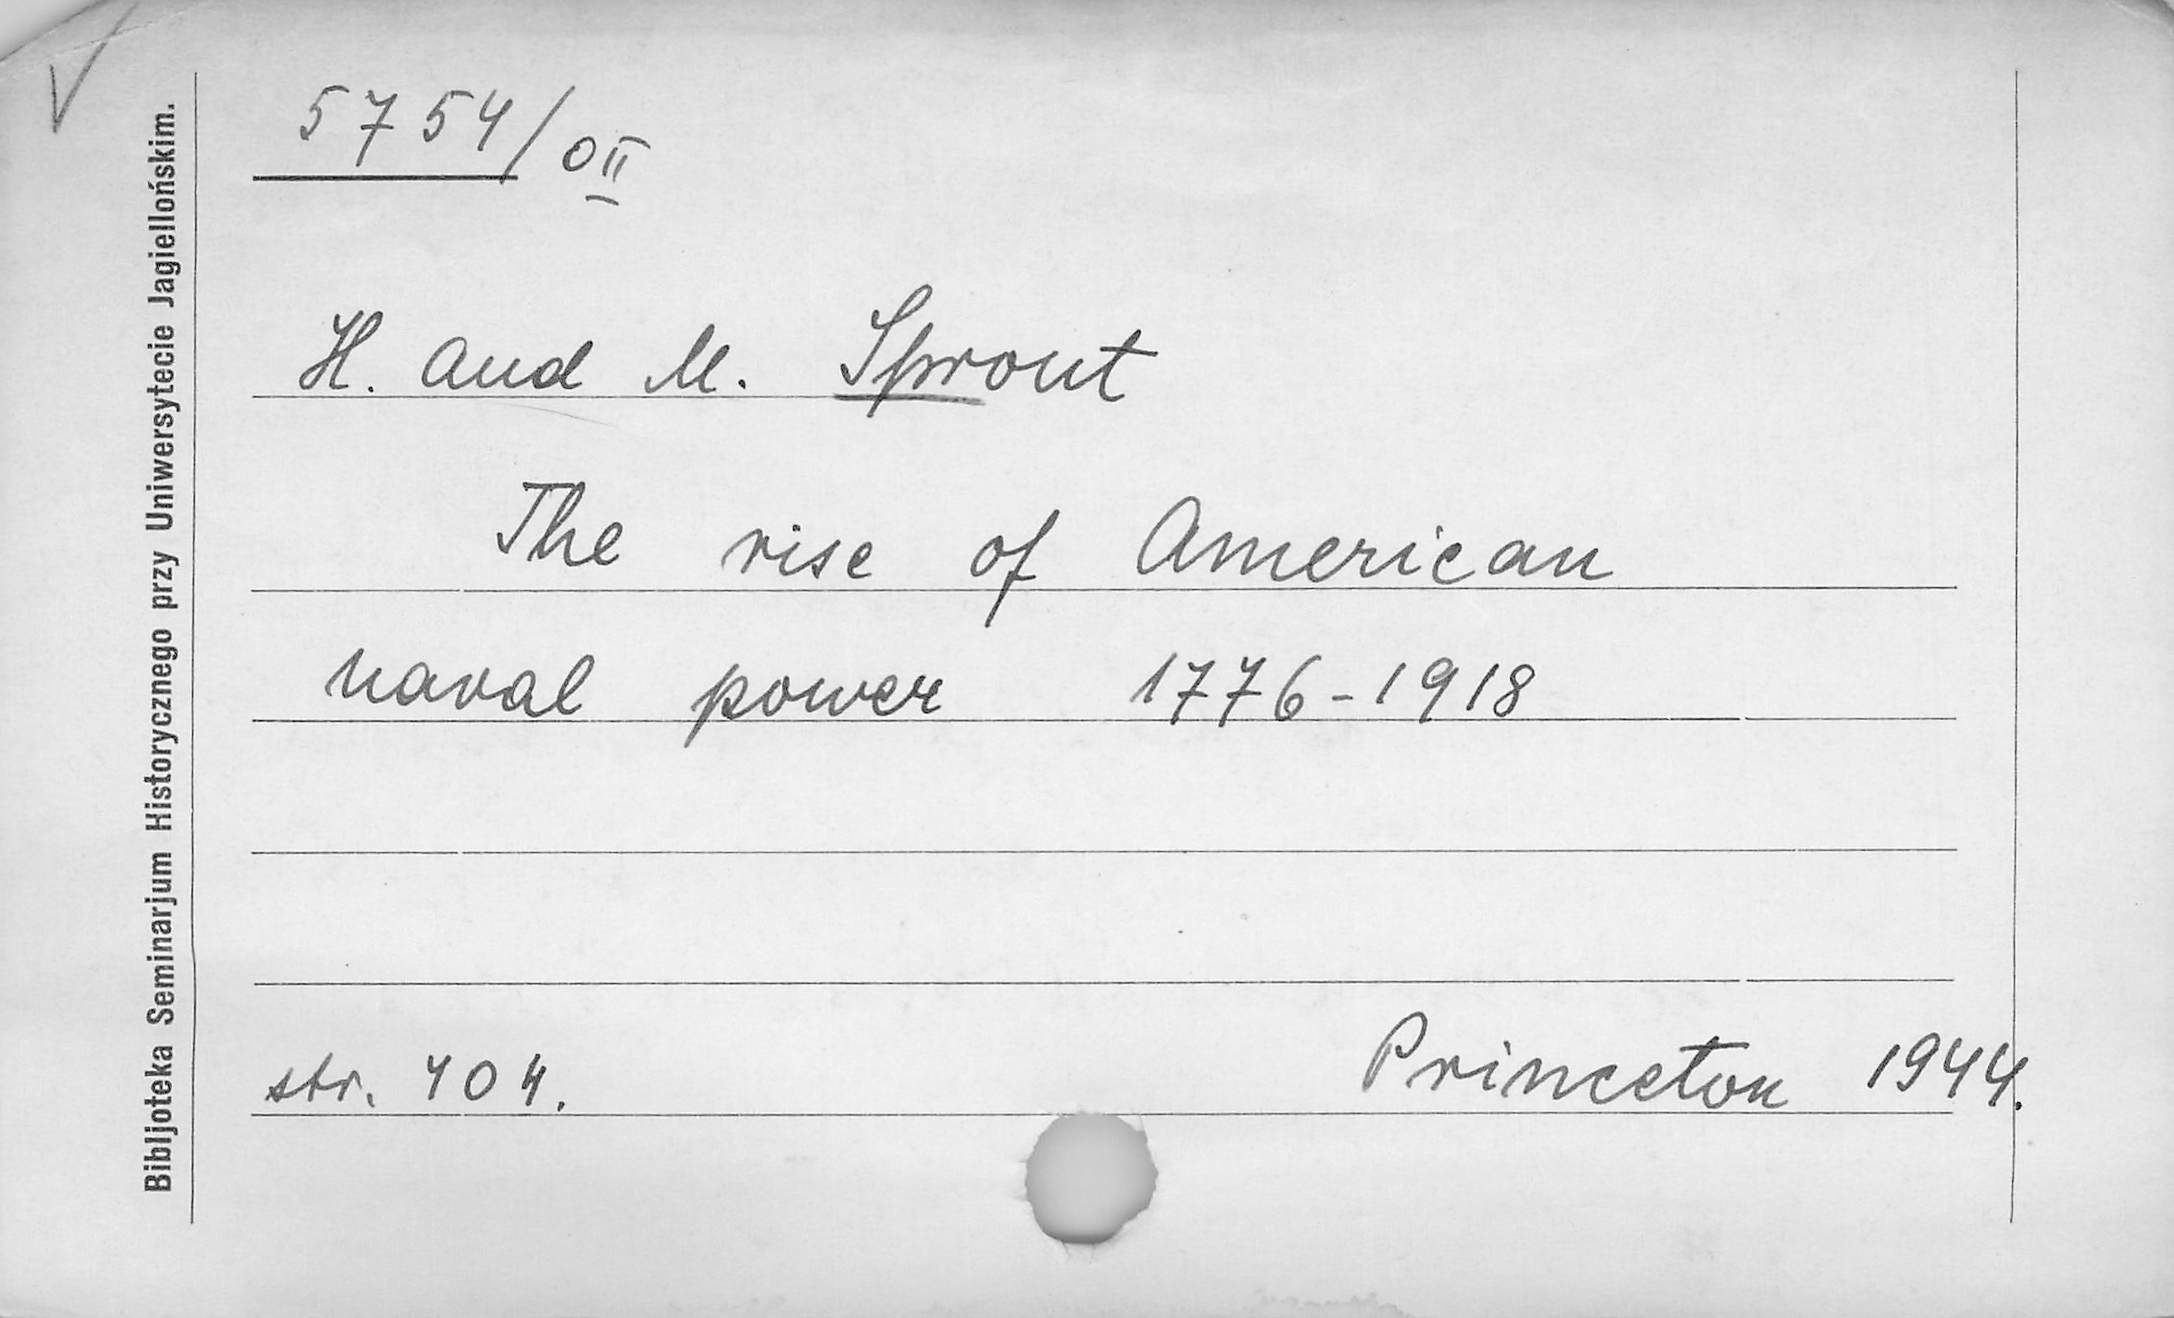 5754/0II
H. and M. Sprout
The rise of American
naval power 1776-1918
str. 404.
Princeton 1944.
Bibljoteka Seminarjum Historycznego przy Uniwersytecie Jagiellońskim.